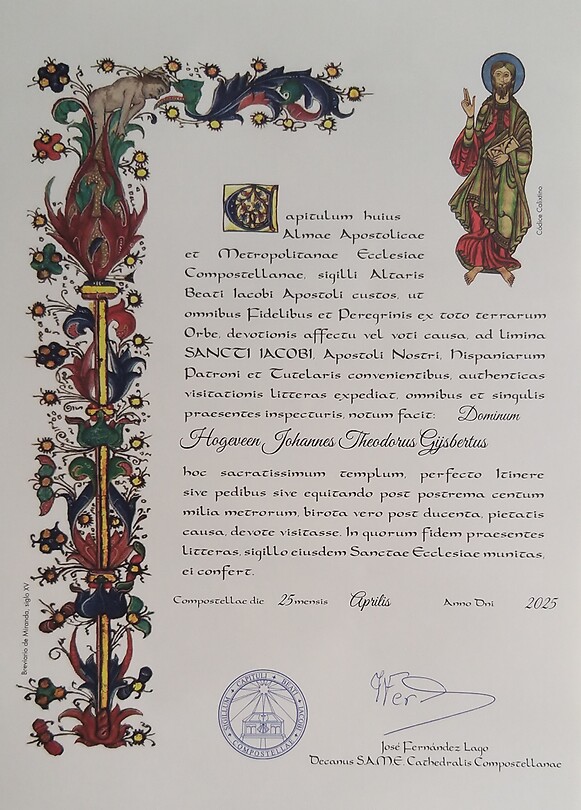 Capitulum huius
Almae Apostolicae
et Metropolitanae Ecclesiae
Compostellanae, sigilli Altaris
Beati Iacobi Apostoli custos, ut
omnibus Fidelibus et Peregrinis ex toto terrarum
Orbe, devotionis affectu vel voti causa, ad limina
SANCTI IACOBI, Apostoli Nostri, Hispaniarum
Patroni et Tutelaris convenientibus, authenticas
visitationis litteras expediat, omnibus et singulis
praesentes inspecturis, notum facit: Dominum
Hogeveen Johannes Theodorus Gijsbertus
hoc sacratissimum templum, perfecto Itinere
sive pedibus sive equitando post postrema centum
milia metrorum, birota vero post ducenta, pietatis
causa, devote visitasse. In quorum fidem praesentes
litteras, sigillo eiusdem Sanctae Ecclesiae munitas,
ei confert.
Compostellae die 25 mensis Aprilis Anno Dni 2025
José Fernández Lago
Decanus S.A.M.E. Cathedralis Compostellanae
SIGILLUM CAPITULI BEATI IACOBI COMPOSTELLAE
Breviario de Miranda, siglo XV
Códice Calixtino